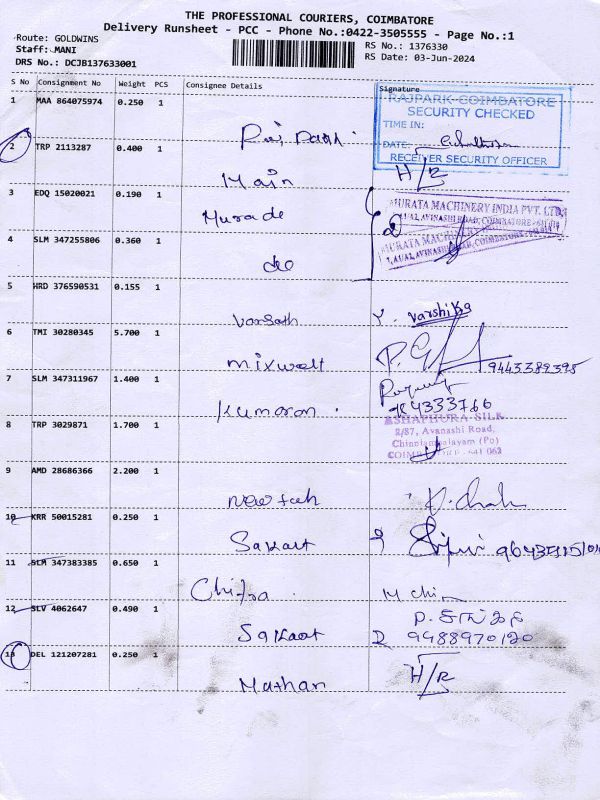 THE PROFESSIONAL COURIERS, COIMBATORE
Delivery Runsheet - PCC - Phone No.:0422-3505555 - Page No.:1
Route: GOLDWINS
Staff: MANI
DRS No.: DCJB137633001
RS No.: 1376330
RS Date: 03-Jun-2024
S No Consignment No Weight PCS Consignee Details Signature
1 MAA 864075974 0.250 1
RAJPARK-COIMBATORE
SECURITY CHECKED
TIME IN:
DATE:
RECEIVER SECURITY OFFICER
2 TRP 2113287 0.400 1
Main H/R
3 EDQ 15020021 0.190 1
Murade
MURATA MACHINERY INDIA PVT. LTD.
4 SLM 347255806 0.360 1
do
5 HRD 376590531 0.155 1
Varsath Y. Varshika
6 TMI 30280345 5.700 1
Mixwelt 9443389395
7 SLM 347311967 1.400 1
Kumaran
8 TRP 3029871 1.700 1
2/87, Avanashi Road,
Chinniampalayam (Po)
9 AMD 28686366 2.200 1
10 KRR 50015281 0.250 1
11 SLM 347383385 0.650 1
Chitra
12 SLV 4062647 0.490 1
9488970120
13 DEL 121207281 0.250 1
Mathan H/R